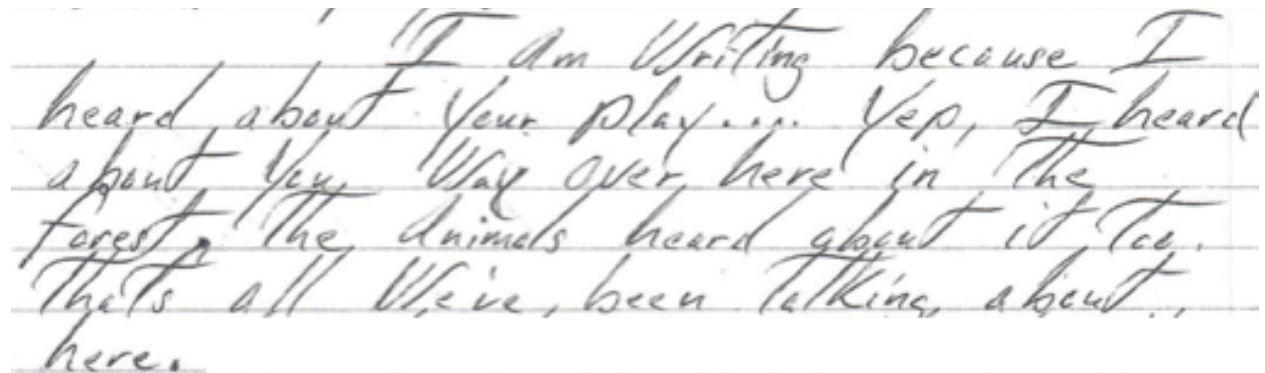 I am Writing because I
heard about Your play.... Yep, I heard
about You Way over here in The
forest, The Animals heard about it Too.
That's all We've been Talking about
here.